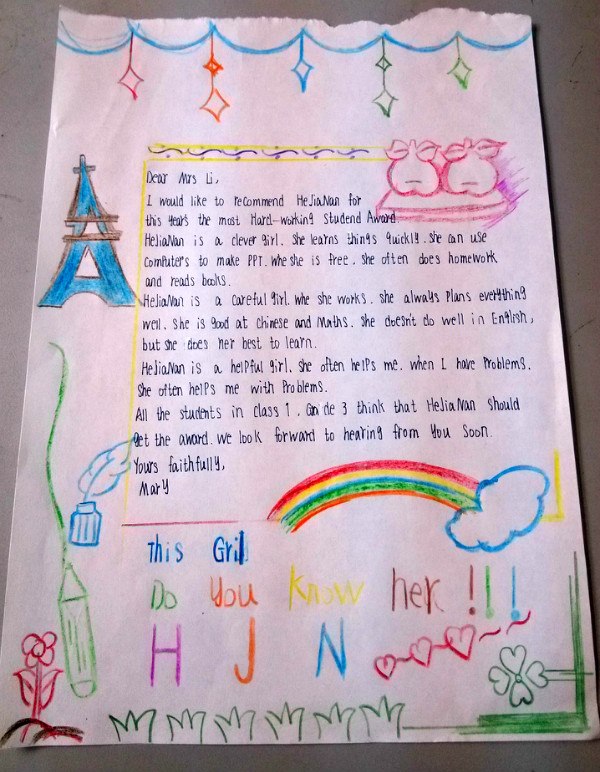 Dear Mrs Li,
I would like to recommend HeJiaNan for
this years the most Hard-working Studend Award.
HeJiaNan is a clever girl. She learns things quickly. she can use
Computers to make PPT. whe she is free. she often does homework
and reads books.
HeJiaNan is a Careful girl. whe she works. she always Plans everything
well. She is good at Chinese and Maths. she doesn't do well in English,
but she does her best to learn.
HeJiaNan is a helpful girl. she often helps me. when I have Problems.
She often helps me with Problems.
All the students in class 1. Grade 3 think that HeJiaNan should
get the award. we look forward to hearing from You Soon.
Yours faithfully,
Mary
This Gril
Do You Know her!!!
H J N